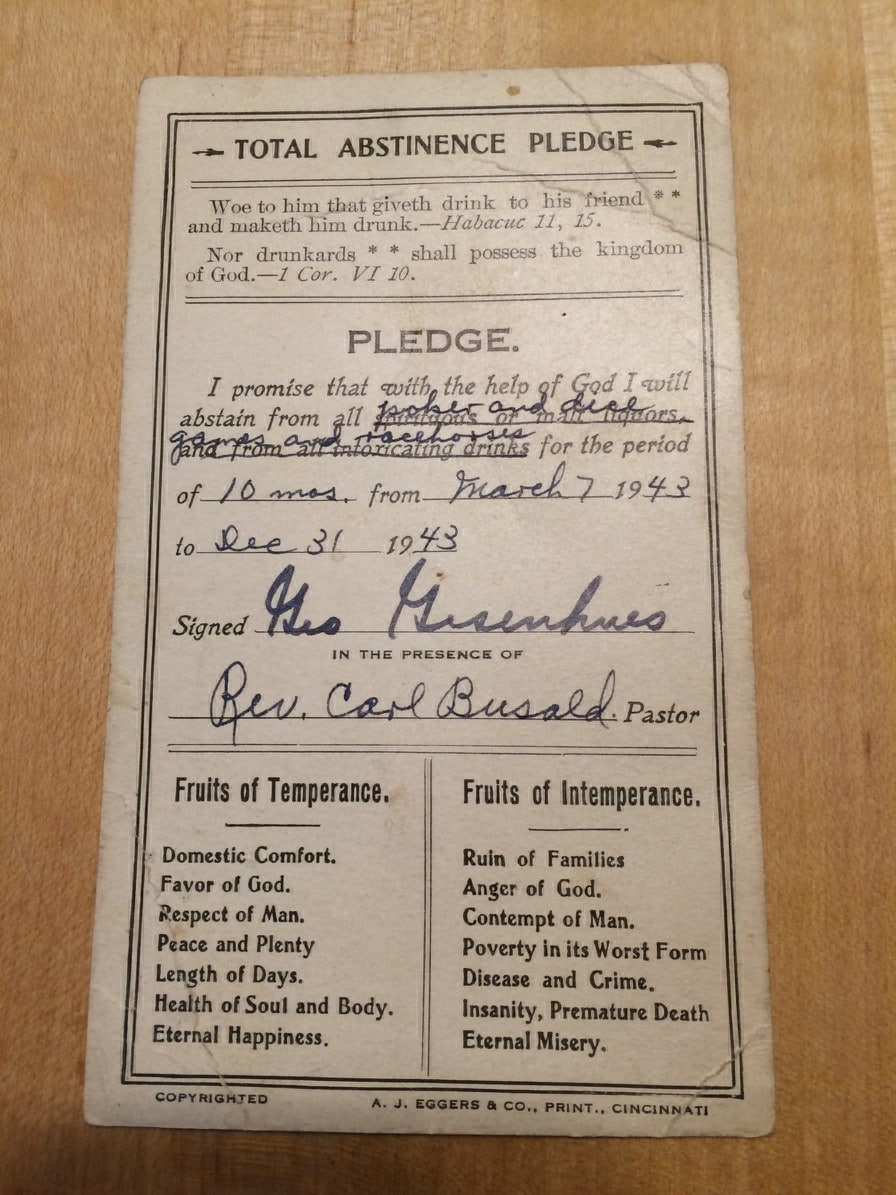 TOTAL ABSTINENCE PLEDGE
Woe to him that giveth drink to his friend * *
and maketh him drunk.—Habacuc 11, 15.
Nor drunkards * * shall possess the kingdom
of God.—1 Cor. VI 10.
PLEDGE.
I promise that with the help of God I will
poker and dice
abstain from all spirituous or malt liquors,
games and racehorses
and from all intoxicating drinks for the period
of 10 mos. from March 7 1943
to Dec 31 1943
Signed Geo Gesenhues
IN THE PRESENCE OF
Rev. Carl Busald. Pastor
Fruits of Temperance.
Domestic Comfort.
Favor of God.
Respect of Man.
Peace and Plenty
Length of Days.
Health of Soul and Body.
Eternal Happiness.
Fruits of Intemperance.
Ruin of Families
Anger of God.
Contempt of Man.
Poverty in its Worst Form
Disease and Crime.
Insanity, Premature Death
Eternal Misery.
COPYRIGHTED
A. J. EGGERS & CO., PRINT., CINCINNATI